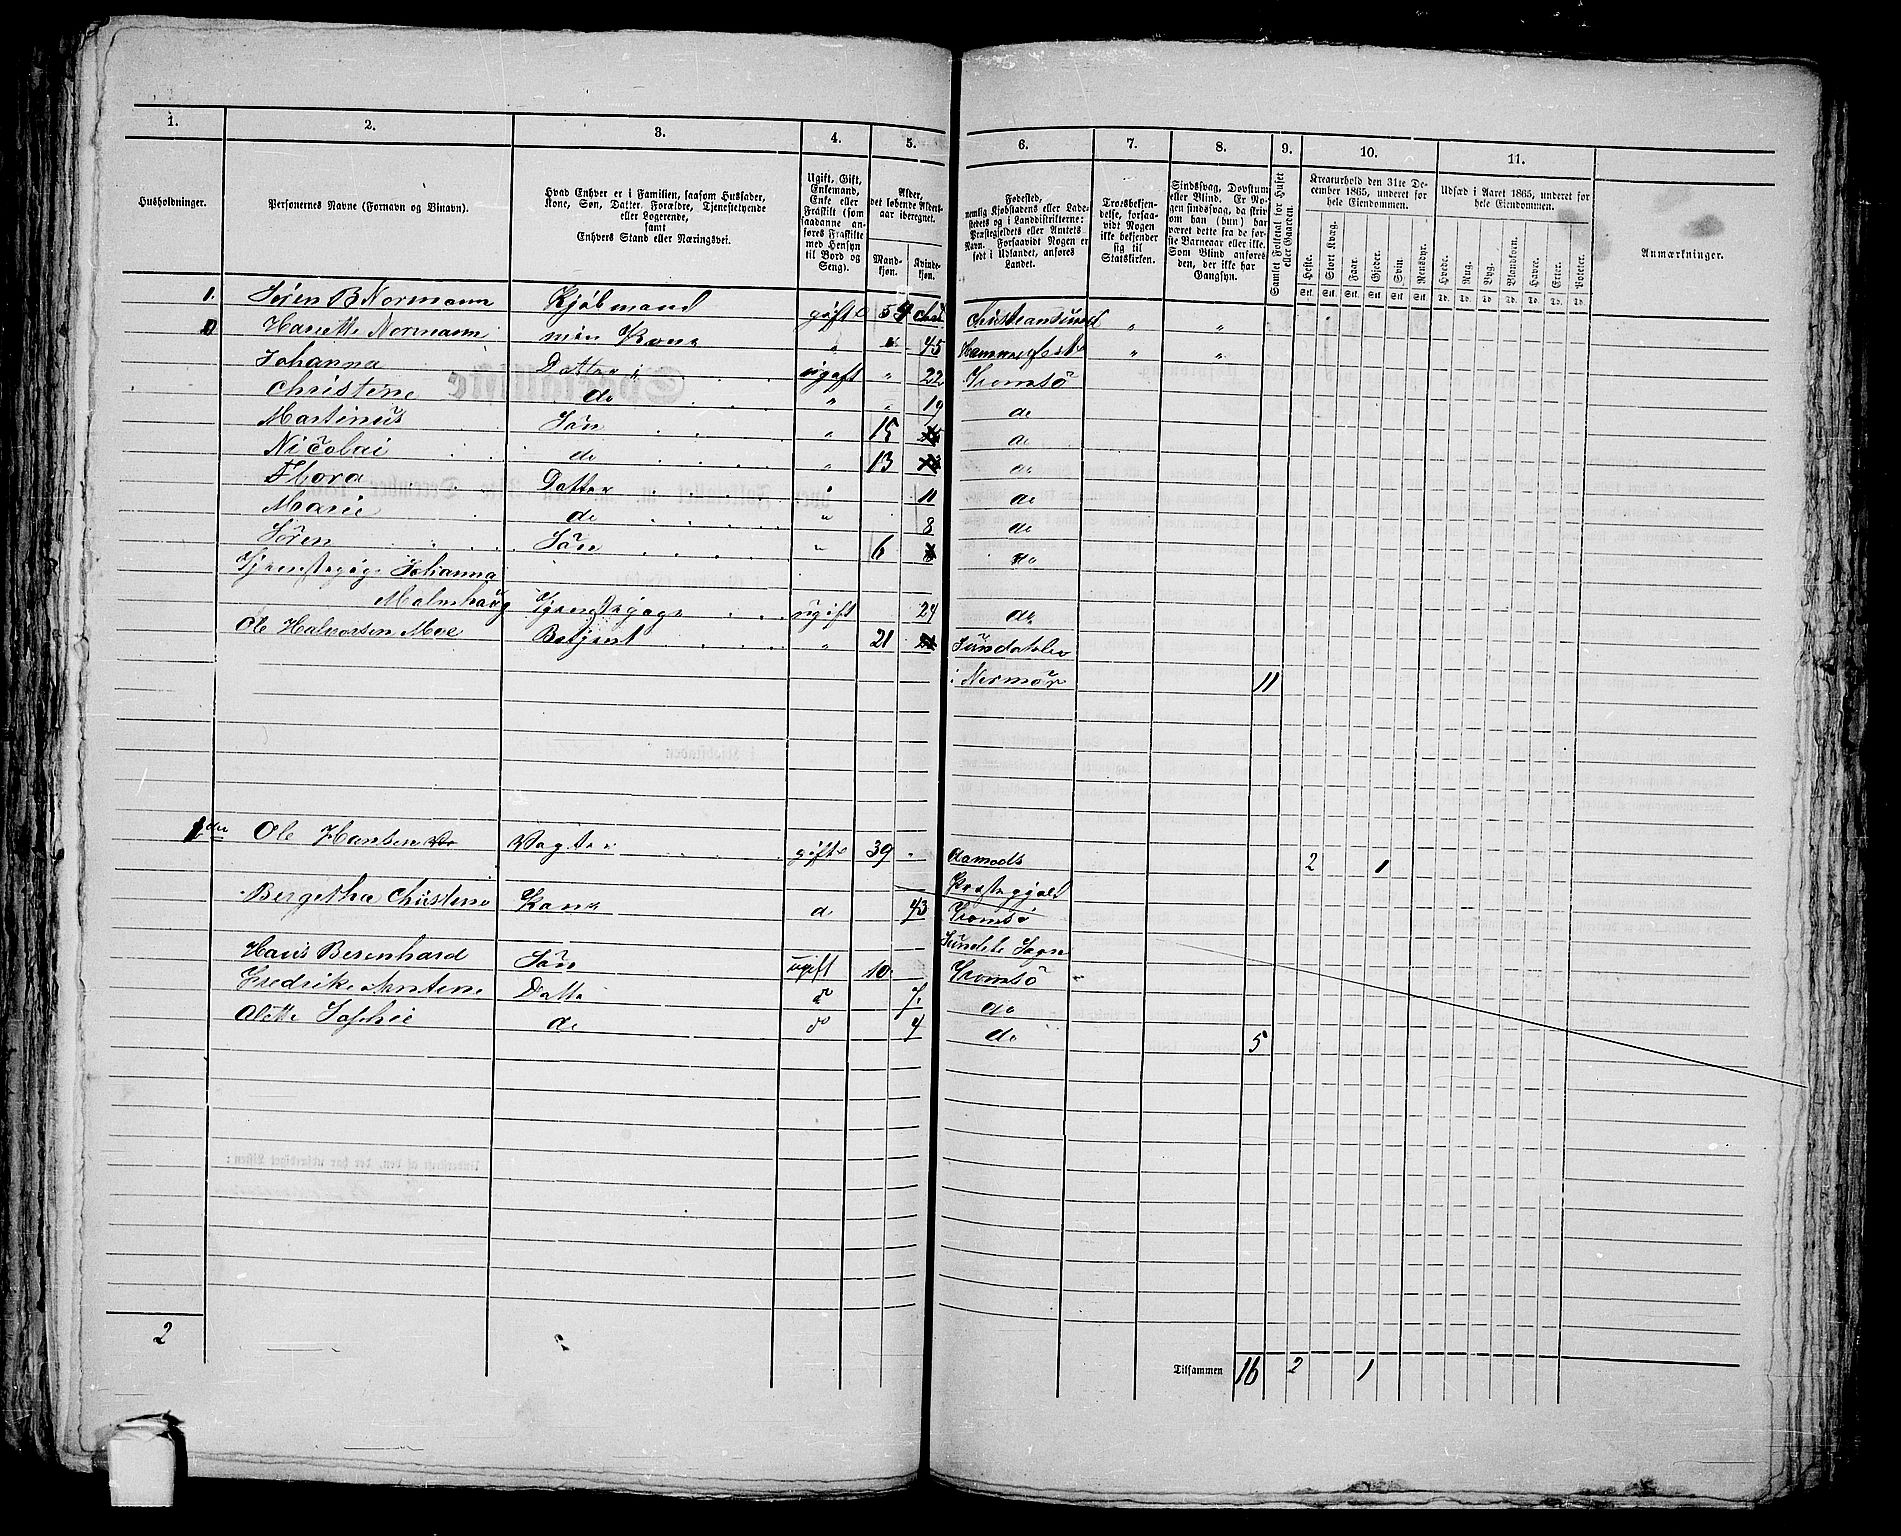 1. 2. 3. 4. 5. 6. 7. 8. 9. 10. 11.
Husholdninger.
Personernes Navne (Fornavn og Tilnavn).
Hvad Enhver er i Familien, saasom Husfader,
Kone, Søn, Datter, Forældre, Tjenestetyende
eller Logerende,
samt
Enhvers Stand eller Næringsvei.
Ugift, Gift,
Enkemand,
Enke eller
Fraskilt (som
saadanne an-
føres Fraskilte
med Hensyn
til Bord og
Seng).
Alder,
det løbende Alders-
aar iberegnet.
Mand-
kjøn.
Kvinde-
kjøn.
Fødested,
nemlig Kjøbstadens eller Lade-
stedets og i Landdistrikterne:
Præstegjeldets eller Amtets
Navn. Forsaavidt Nogen er
født i Udlandet, anføres
Landet.
Trosbekjen-
delse, forsaa-
vidt Nogen
ikke bekjender
sig til
Statskirken.
Sindssvag, Døvstum
eller Blind. Er No-
gen sindssvag, da skriv
om han (hun) har
været dette fra de før-
ste Barneaar eller ikke.
Som Blind anføres
den, der ikke har
Gangsyn.
Samlet Folketal for Huset
eller Gaarden.
Kreaturhold den 31te De-
cember 1865, underet for
hele Eiendommen.
Heste. Stort Kvæg. Faar. Gjeder. Svin. Rensdyr.
Stk. Stk. Stk. Stk. Stk. Stk.
Udsæd i Aaret 1865, underet for
hele Eiendommen.
Hvede. Rug. Byg. Blandkorn. Havre. Erter. Poteter.
Td. Td. Td. Td. Td. Td. Td.
Anmærkninger.
1. Søren B Normann Kjøbmand gift 54 Christiansund " "
Hariette Normann min Kone " " 45 Hammerfest " "
Johanna Datter ugift " 22 Tromsö
Christine do " " 19 do
Martinus Sön " 15 do
Nicolai do " 13 do
Thora Datter " 11 do
Marie do " 8 do
Sören Sön " 6 do
Tjenstepige Johanna
Malmhaug Tjenstepige ugift 24 do
Ole Halvorsen Moe Betjent " 21 Sundalen
i Normör 11
Ole Hansen Vogter gift 39 " Aamods 2 1
Præstegjeld
Bergetha Christene Kone d 43 Tromsö
Sogn
Hans Berenhard Sön ugift 10 Tromsö "
Fredrike Antene Datte do 7 do
Olette Sophie do do 4 do 5
2
Tilsammen 16 2 1